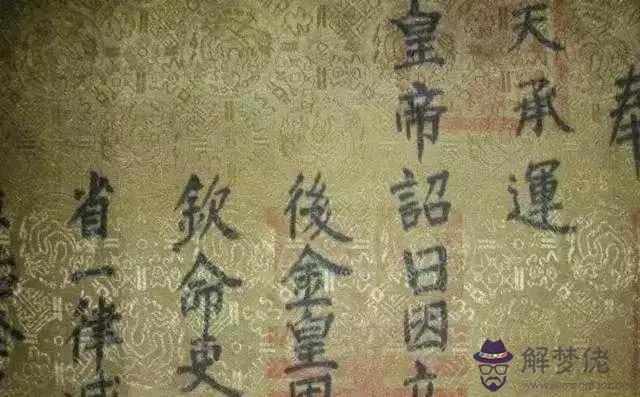 奉
天承運
皇帝詔曰因立
後金皇
欽命吏
省一律
解梦佬